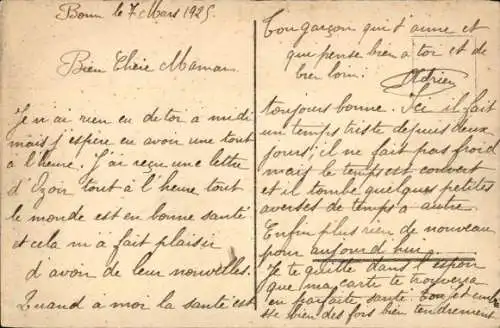 Bonn le 7 Mars 1925
Bien Chère Maman
Je n'ai rien eu de toi a midi
mais j'espère eu avoir une tout
à l'heure. J'ai reçu une lettre
d'Ozoir tout à l'heure tout
le monde est en bonne santé
et cela m'a fait plaisir
d'avoir de leur nouvelles.
Quand a moi la santé est
toujours bonne. Ici il fait
un temps triste depuis deux
jours; il ne fait pas froid
mais le temps est couvert
et il tombe quelques petites
averses de temps a autre.
Enfin plus rien de nouveau
pour aujourd'hui.
Je te quitte dans l'espoir
que ma carte te trouvera
en parfaite santé. Ton
bien des fois bien tendrement
Ton garçon qui t'aime et
qui pense bien a toi et de
bien loin.
Adrien